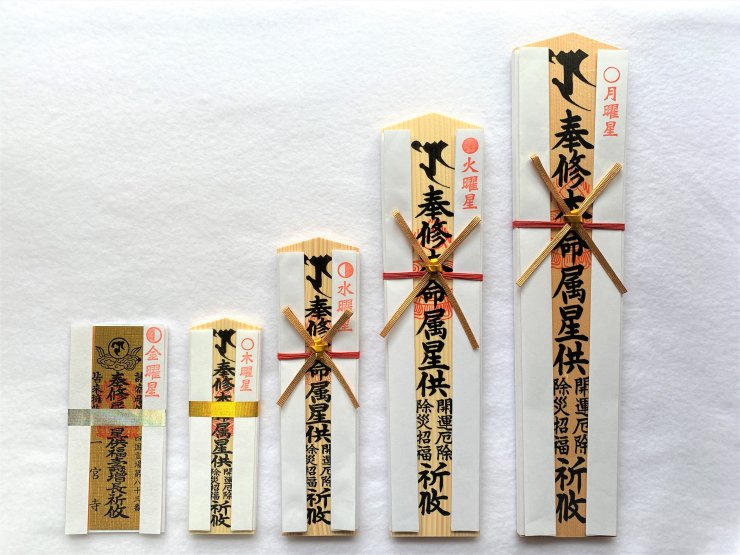 ○月曜星
奉修本命属星供
開運厄除
除災招福
祈攸
火曜星
奉修本命属星供
開運厄除
除災招福
祈攸
水曜星
奉修本命属星供
開運厄除
除災招福
祈攸
○木曜星
奉修本命属星供
開運厄除
除災招福
祈攸
金曜星
四国霊場第八十三番
奉修
星供福寿増長祈攸
一宮寺